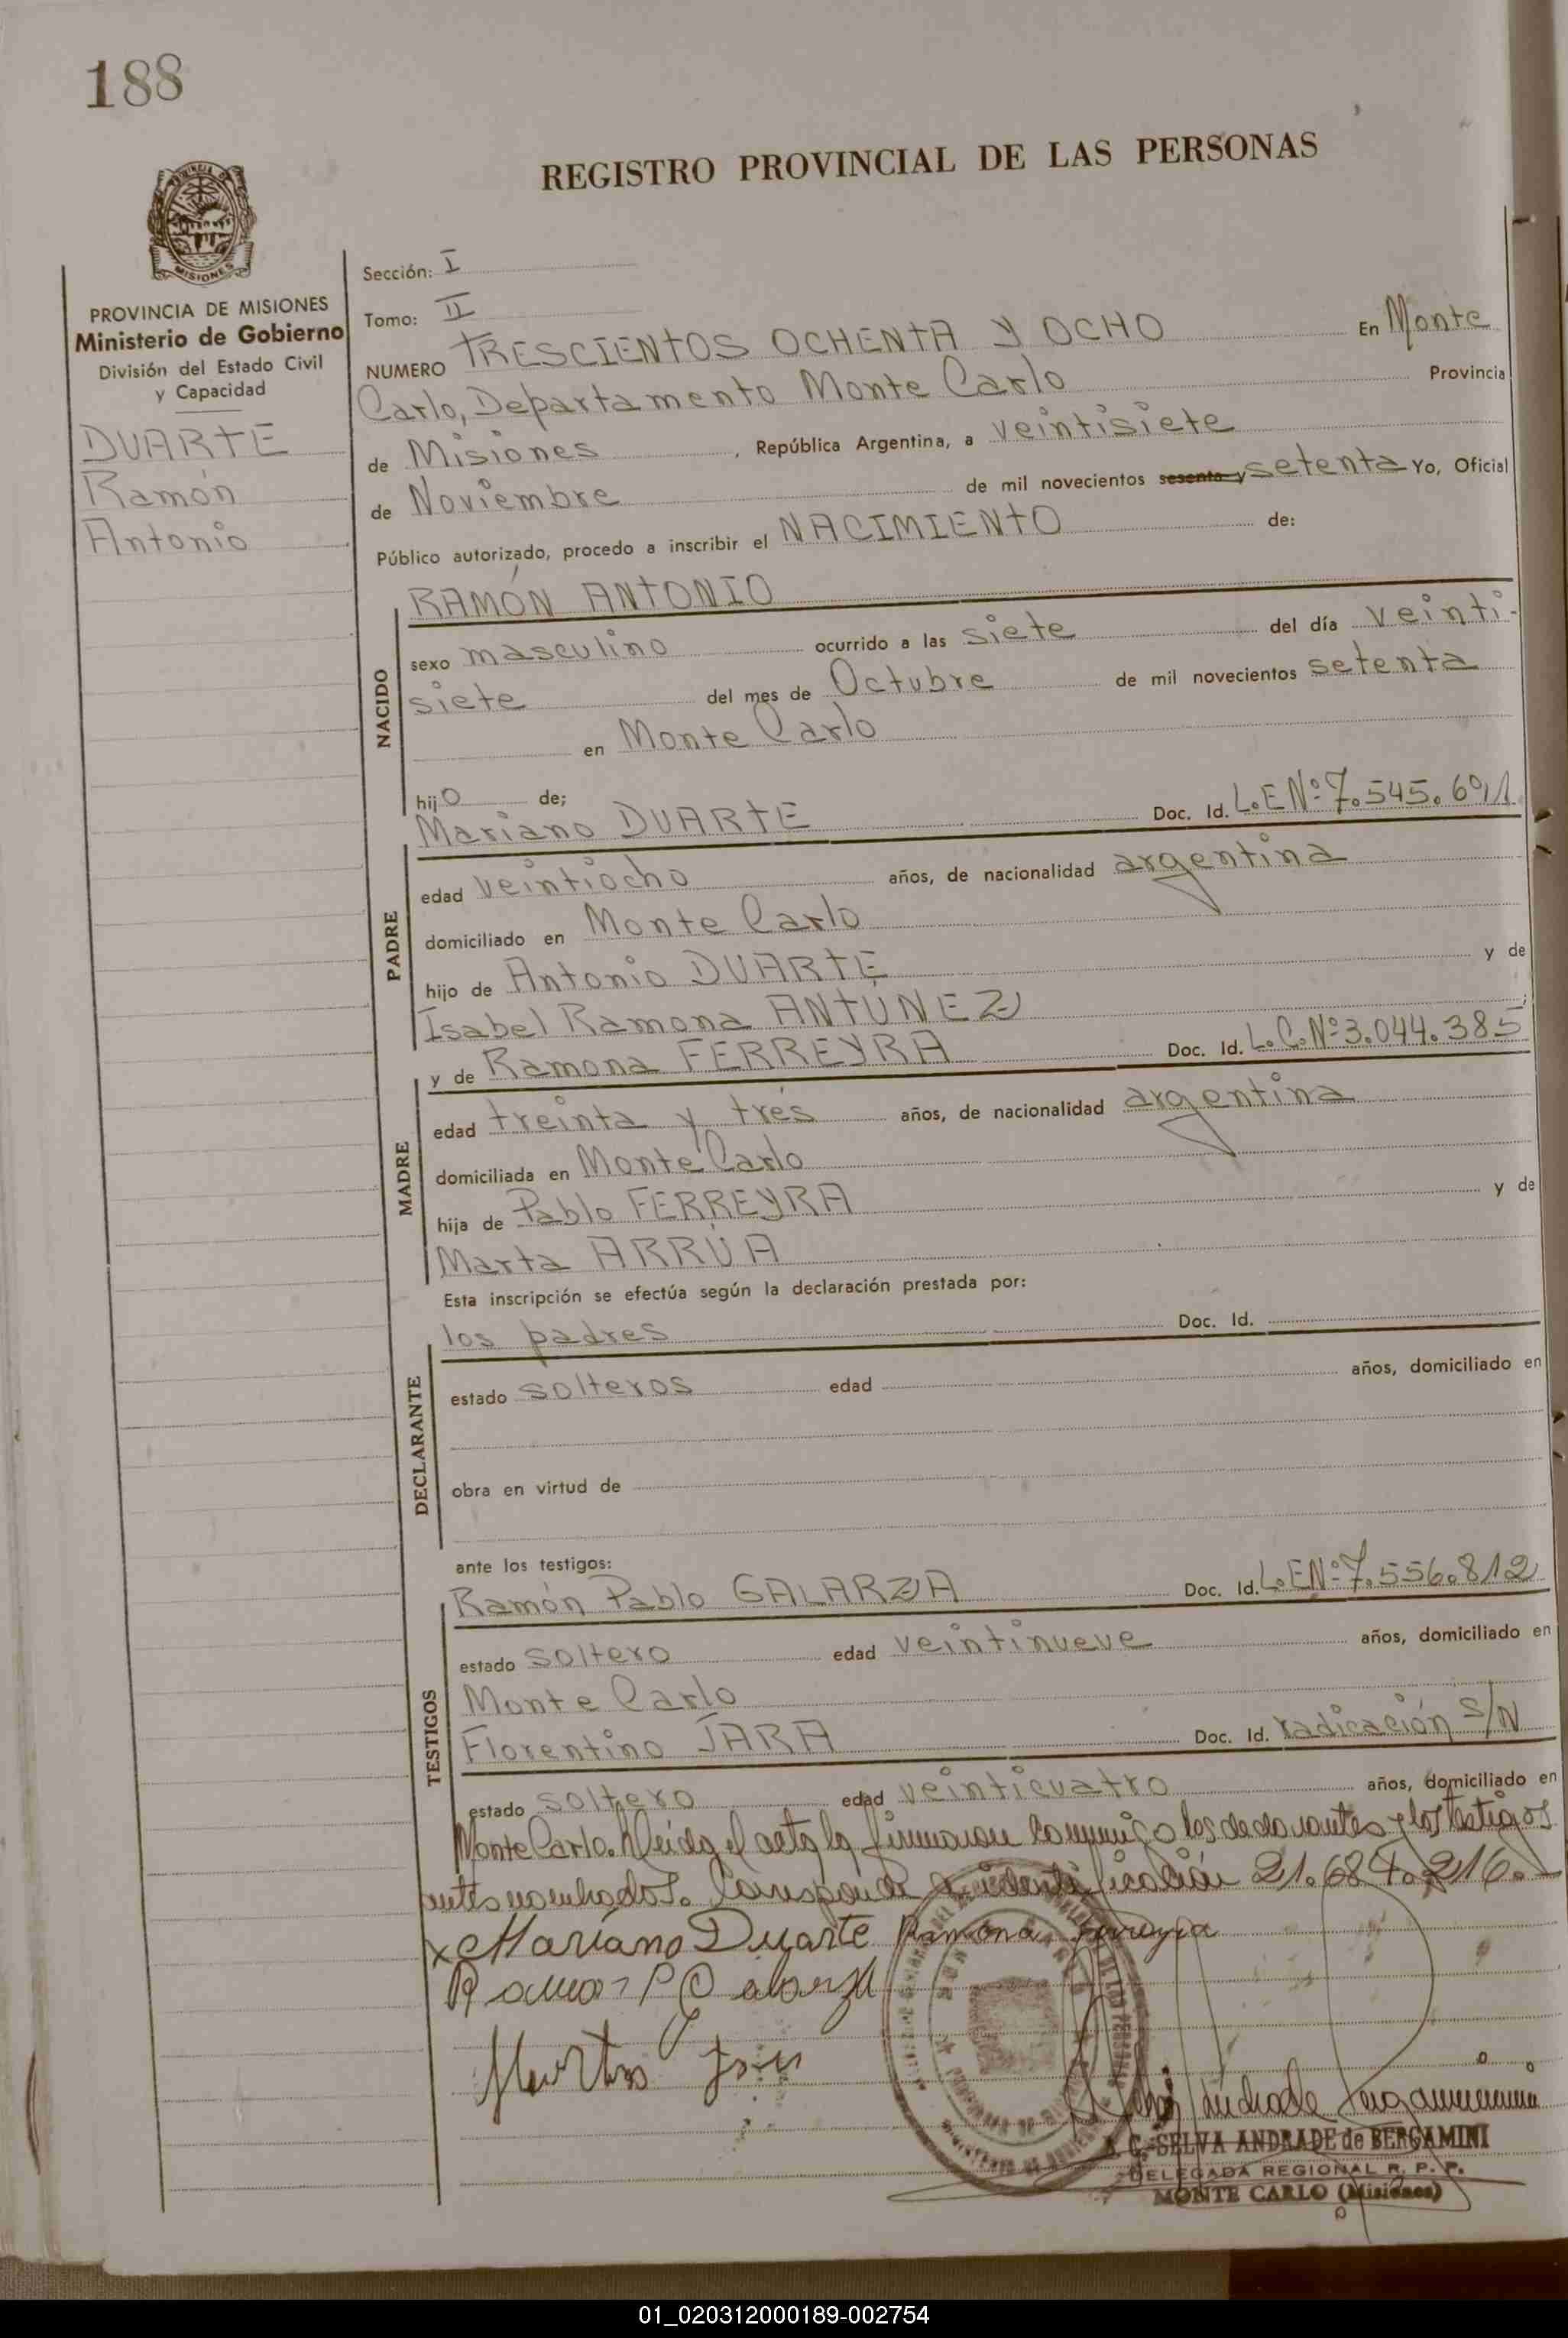 188
REGISTRO PROVINCIAL DE LAS PERSONAS
MISIONES
PROVINCIA DE MISIONES
Ministerio de Gobierno
División del Estado Civil
y Capacidad
DUARTE
Ramón
Antonio
Sección: I
Tomo: II
NUMERO TRESCIENTOS OCHENTA Y OCHO En Monte
Carlo, Departamento Monte Carlo Provincia
de Misiones, República Argentina, a veintisiete
de Noviembre de mil novecientos sesenta y setenta Yo, Oficial
Público autorizado, procedo a inscribir el NACIMIENTO de:
RAMÓN ANTONIO
NACIDO
sexo masculino ocurrido a las siete del día veinti-
siete del mes de Octubre de mil novecientos setenta
en Monte Carlo
hijo de;
Mariano DUARTE Doc. Id. L.E Nº 7.545.691
PADRE
edad veintiocho años, de nacionalidad argentina
domiciliado en Monte Carlo
hijo de Antonio DUARTE y de
Isabel Ramona ANTÚNEZ;
y de Ramona FERREYRA Doc. Id. L.C.Nº 3.044.385
MADRE
edad treinta y trés años, de nacionalidad argentina
domiciliada en Monte Carlo
hija de Pablo FERREYRA y de
Marta ARRÚA
Esta inscripción se efectúa según la declaración prestada por:
los padres Doc. Id.
DECLARANTE
estado solteros edad años, domiciliado en
obra en virtud de
ante los testigos:
Ramón Pablo GALARZA Doc. Id. L.E Nº 7.556.812
TESTIGOS
estado soltero edad veintinueve años, domiciliado en
Monte Carlo
Florentino JARA Doc. Id. radicación S/N
estado soltero edad veinticuatro años, domiciliado en
Monte Carlo. Leida el acta la firmaron conmigo los declarantes y los testigos
antes nombrados. Corresponde a identificación 21.684.216.
x Mariano Duarte Ramona Ferreyra
Ramon P Galarza
A. C. SELVA ANDRADE de BERGAMINI
DELEGADA REGIONAL R. P. P.
MONTE CARLO (Misiones)
01_020312000189-002754